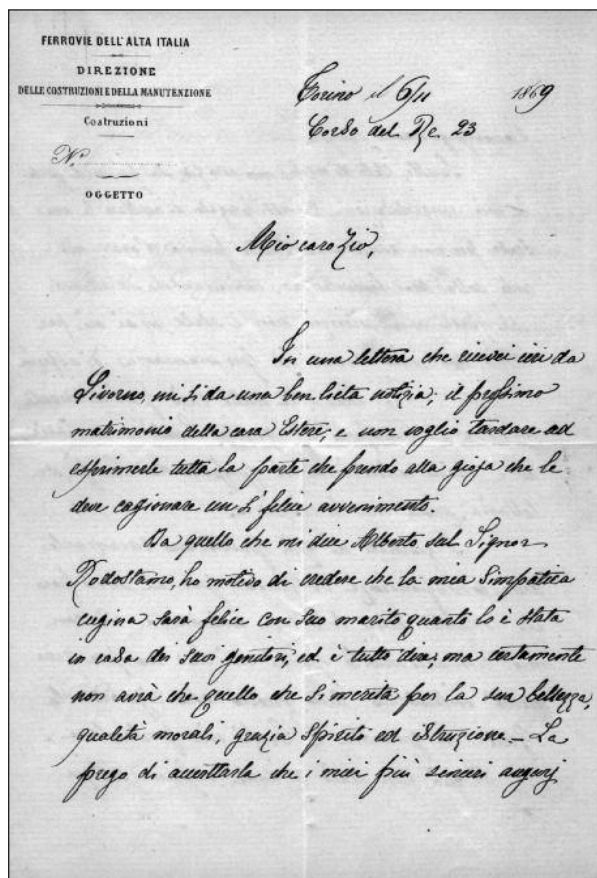 FERROVIE DELL'ALTA ITALIA
DIREZIONE
DELLE COSTRUZIONI E DELLA MANUTENZIONE
Costruzioni
N.
OGGETTO
Torino il 6/11 1869
Corso del Re 23
Mio caro Zio,
In una lettera che ricevei ieri da
Livorno, mi si da una ben lieta notizia; il prossimo
matrimonio della cara Estere; e non voglio tardare ad
esprimerle tutta la parte che prendo alla gioja che le
deve cagionare un sì felice avvenimento.
Da quello che mi dice Alberto sul Signor
Rodostamo, ho motivo di credere che la mia simpatica
cugina sarà felice con suo marito quanto lo è stata
in casa dei suoi genitori, ed è tutto dire, ma certamente
non avrà che quello che si merita per la sua bellezza,
qualità morali, grazia spirito ed istruzione. — La
prego di accertarla che i miei più sinceri augurj